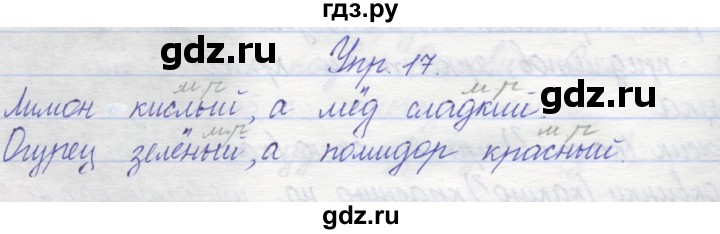 гдз.ру
gdz.ru gdz.ru
Упр. 17.
м.р. м.р.
Лимон кислый, а мёд сладкий.
м.р. м.р.
Огурец зелёный, а помидор красный.
gdz.ru gdz.ru
gdz.ru